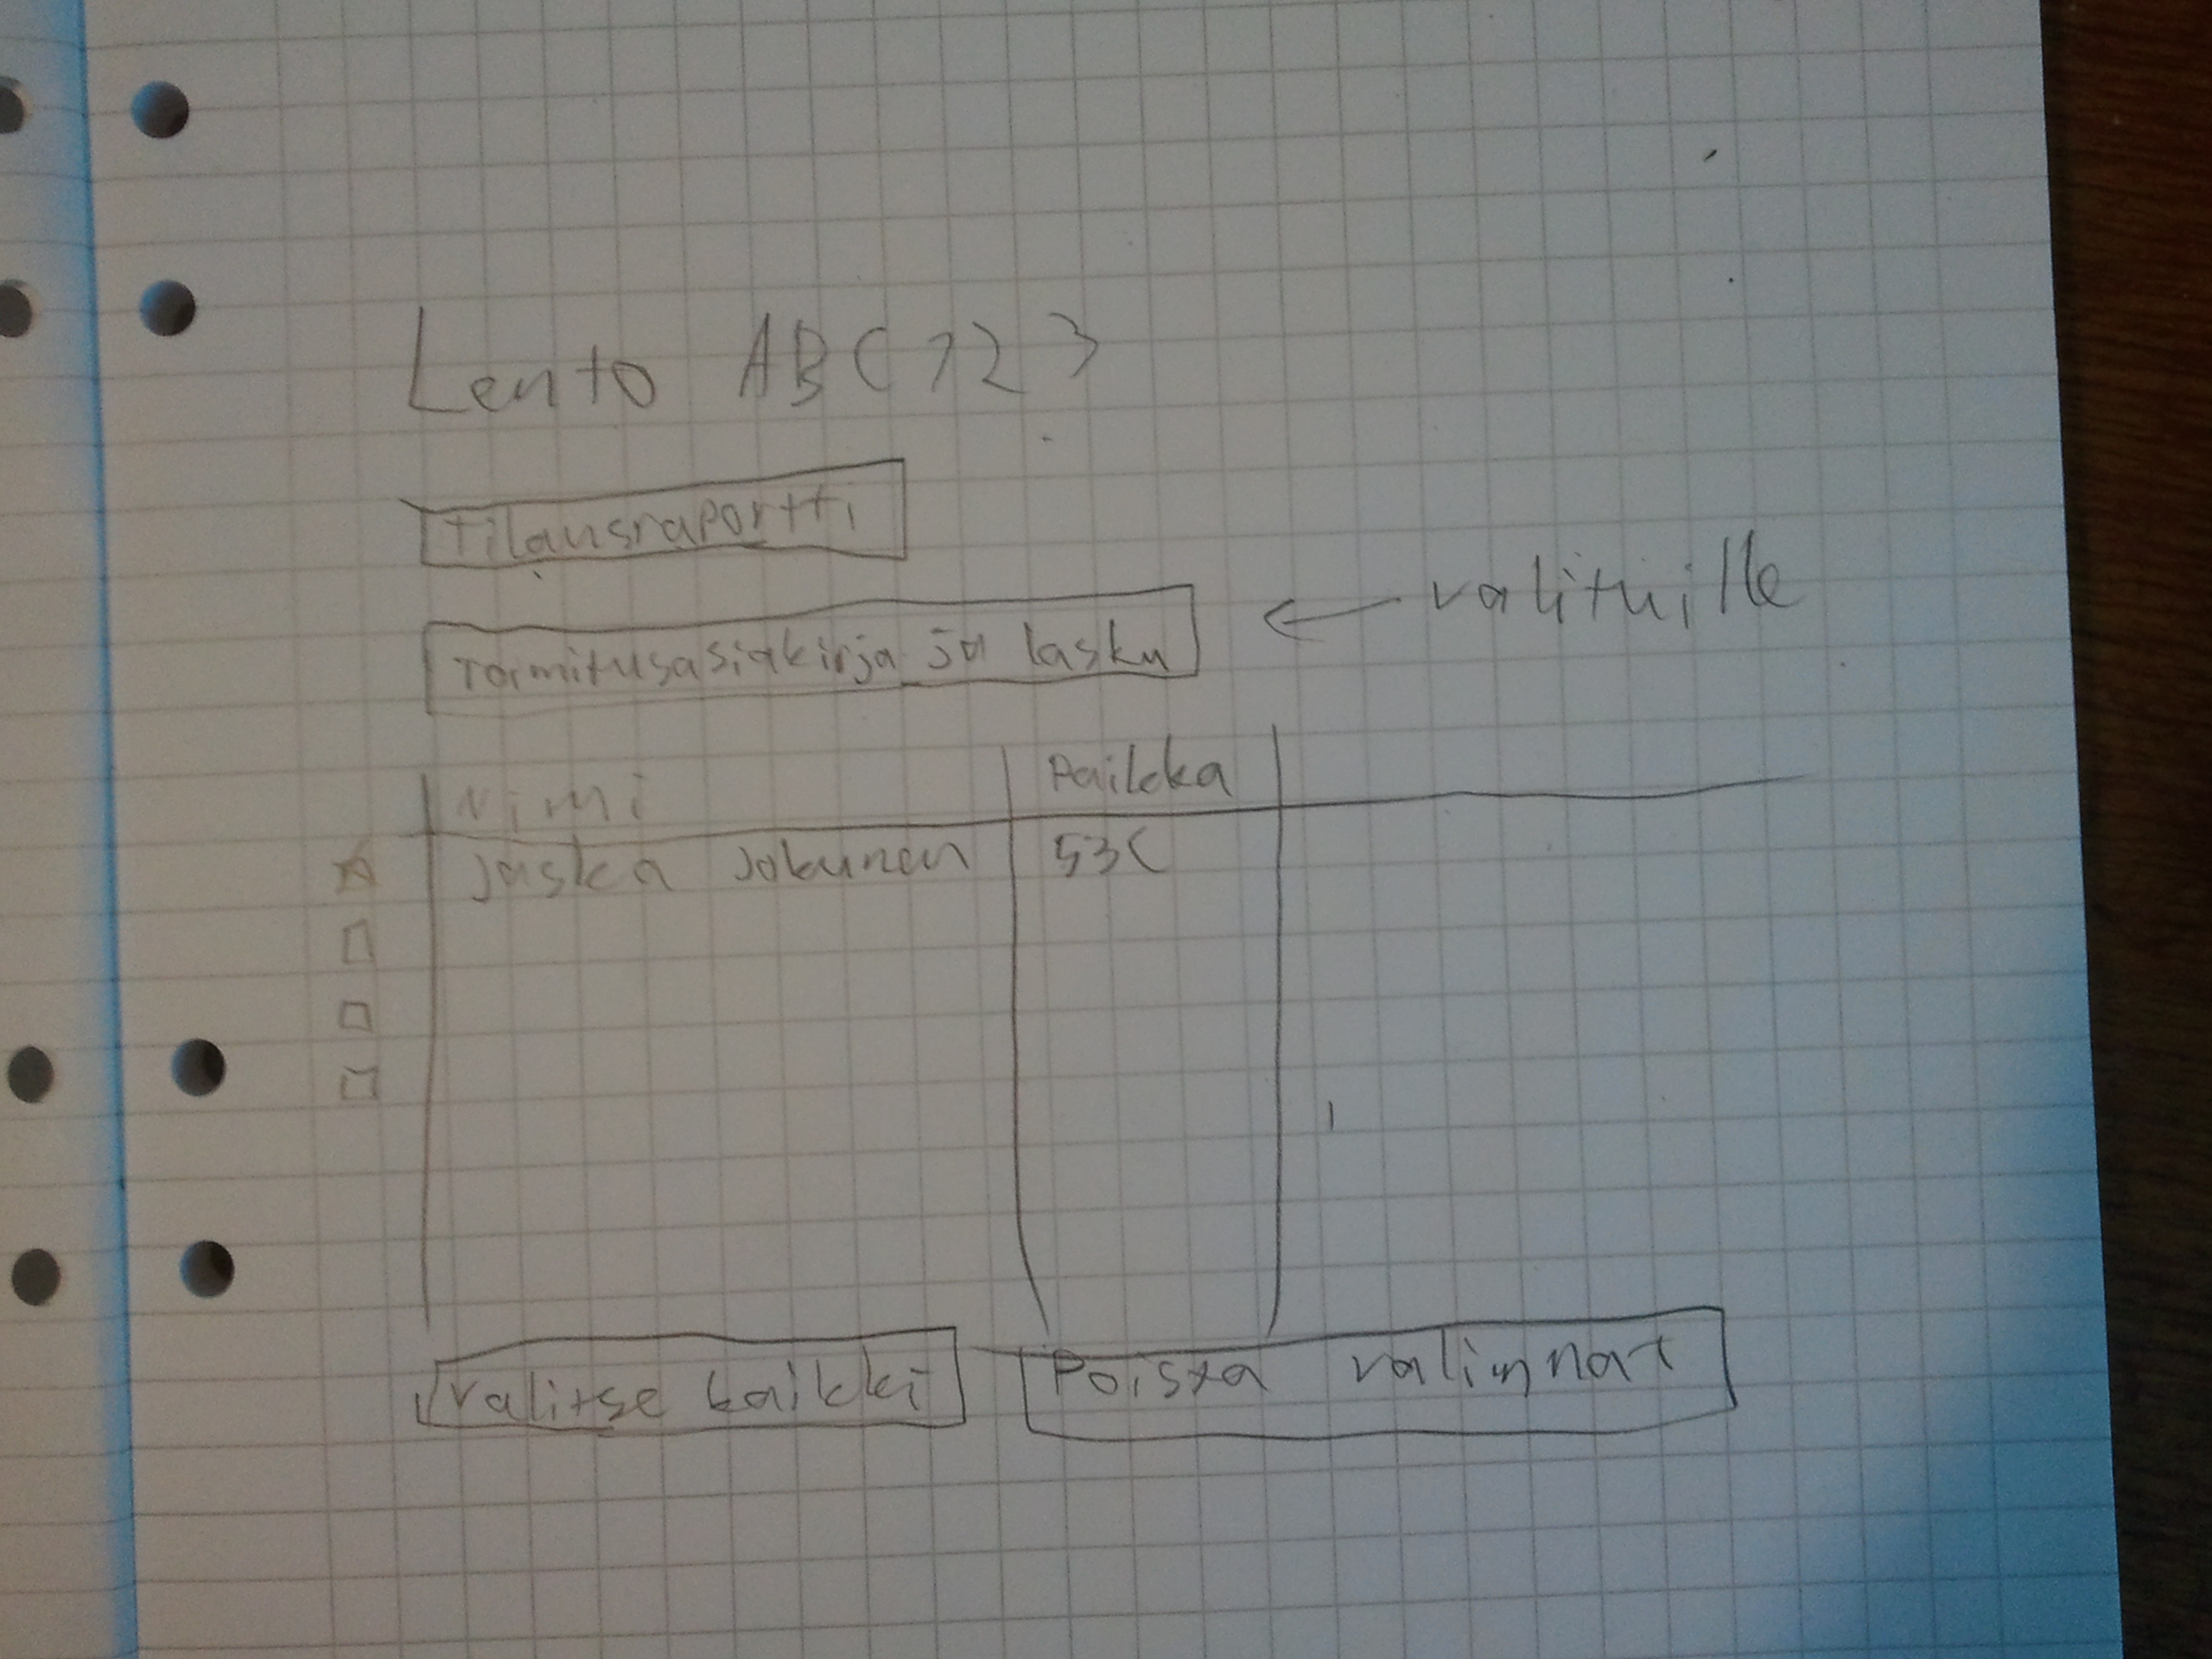 Lento ABC123
Tilausraportti
Toimitusasiakirja ja lasku
valituille
Nimi Paikka
Jaska Jokunen 53C
Valitse kaikki Poista valinnat